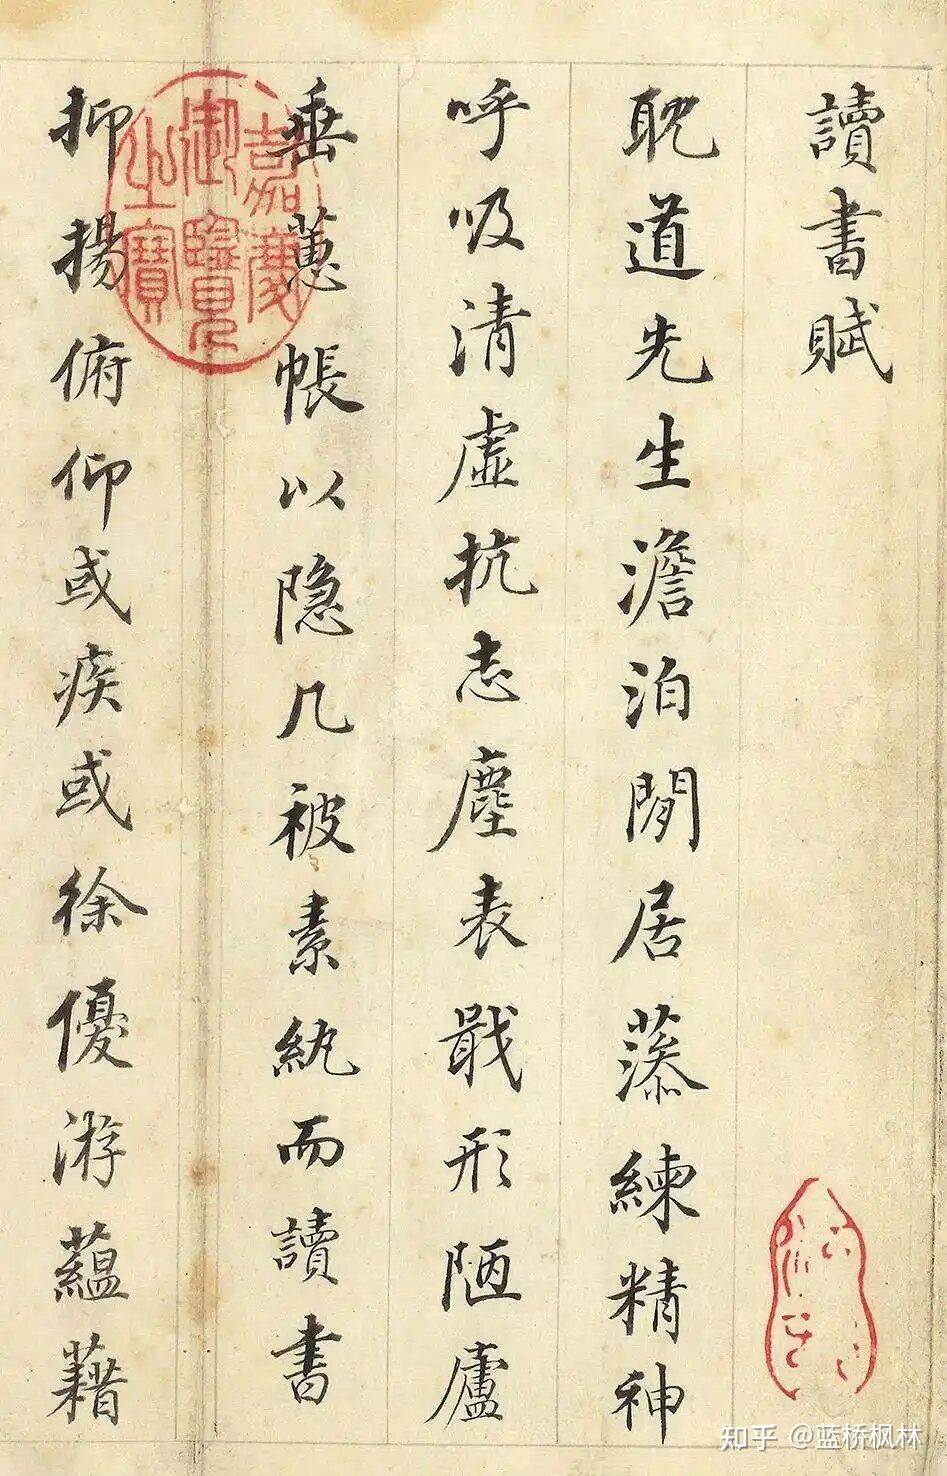 讀書賦
耽道先生澹泊閒居藻練精神
呼吸清虛抗志塵表戢形陋廬
垂蕙帳以隱几被素紈而讀書
抑揚俯仰或疾或徐優游蘊藉
嘉慶御覽之寶
知乎 @蓝桥枫林